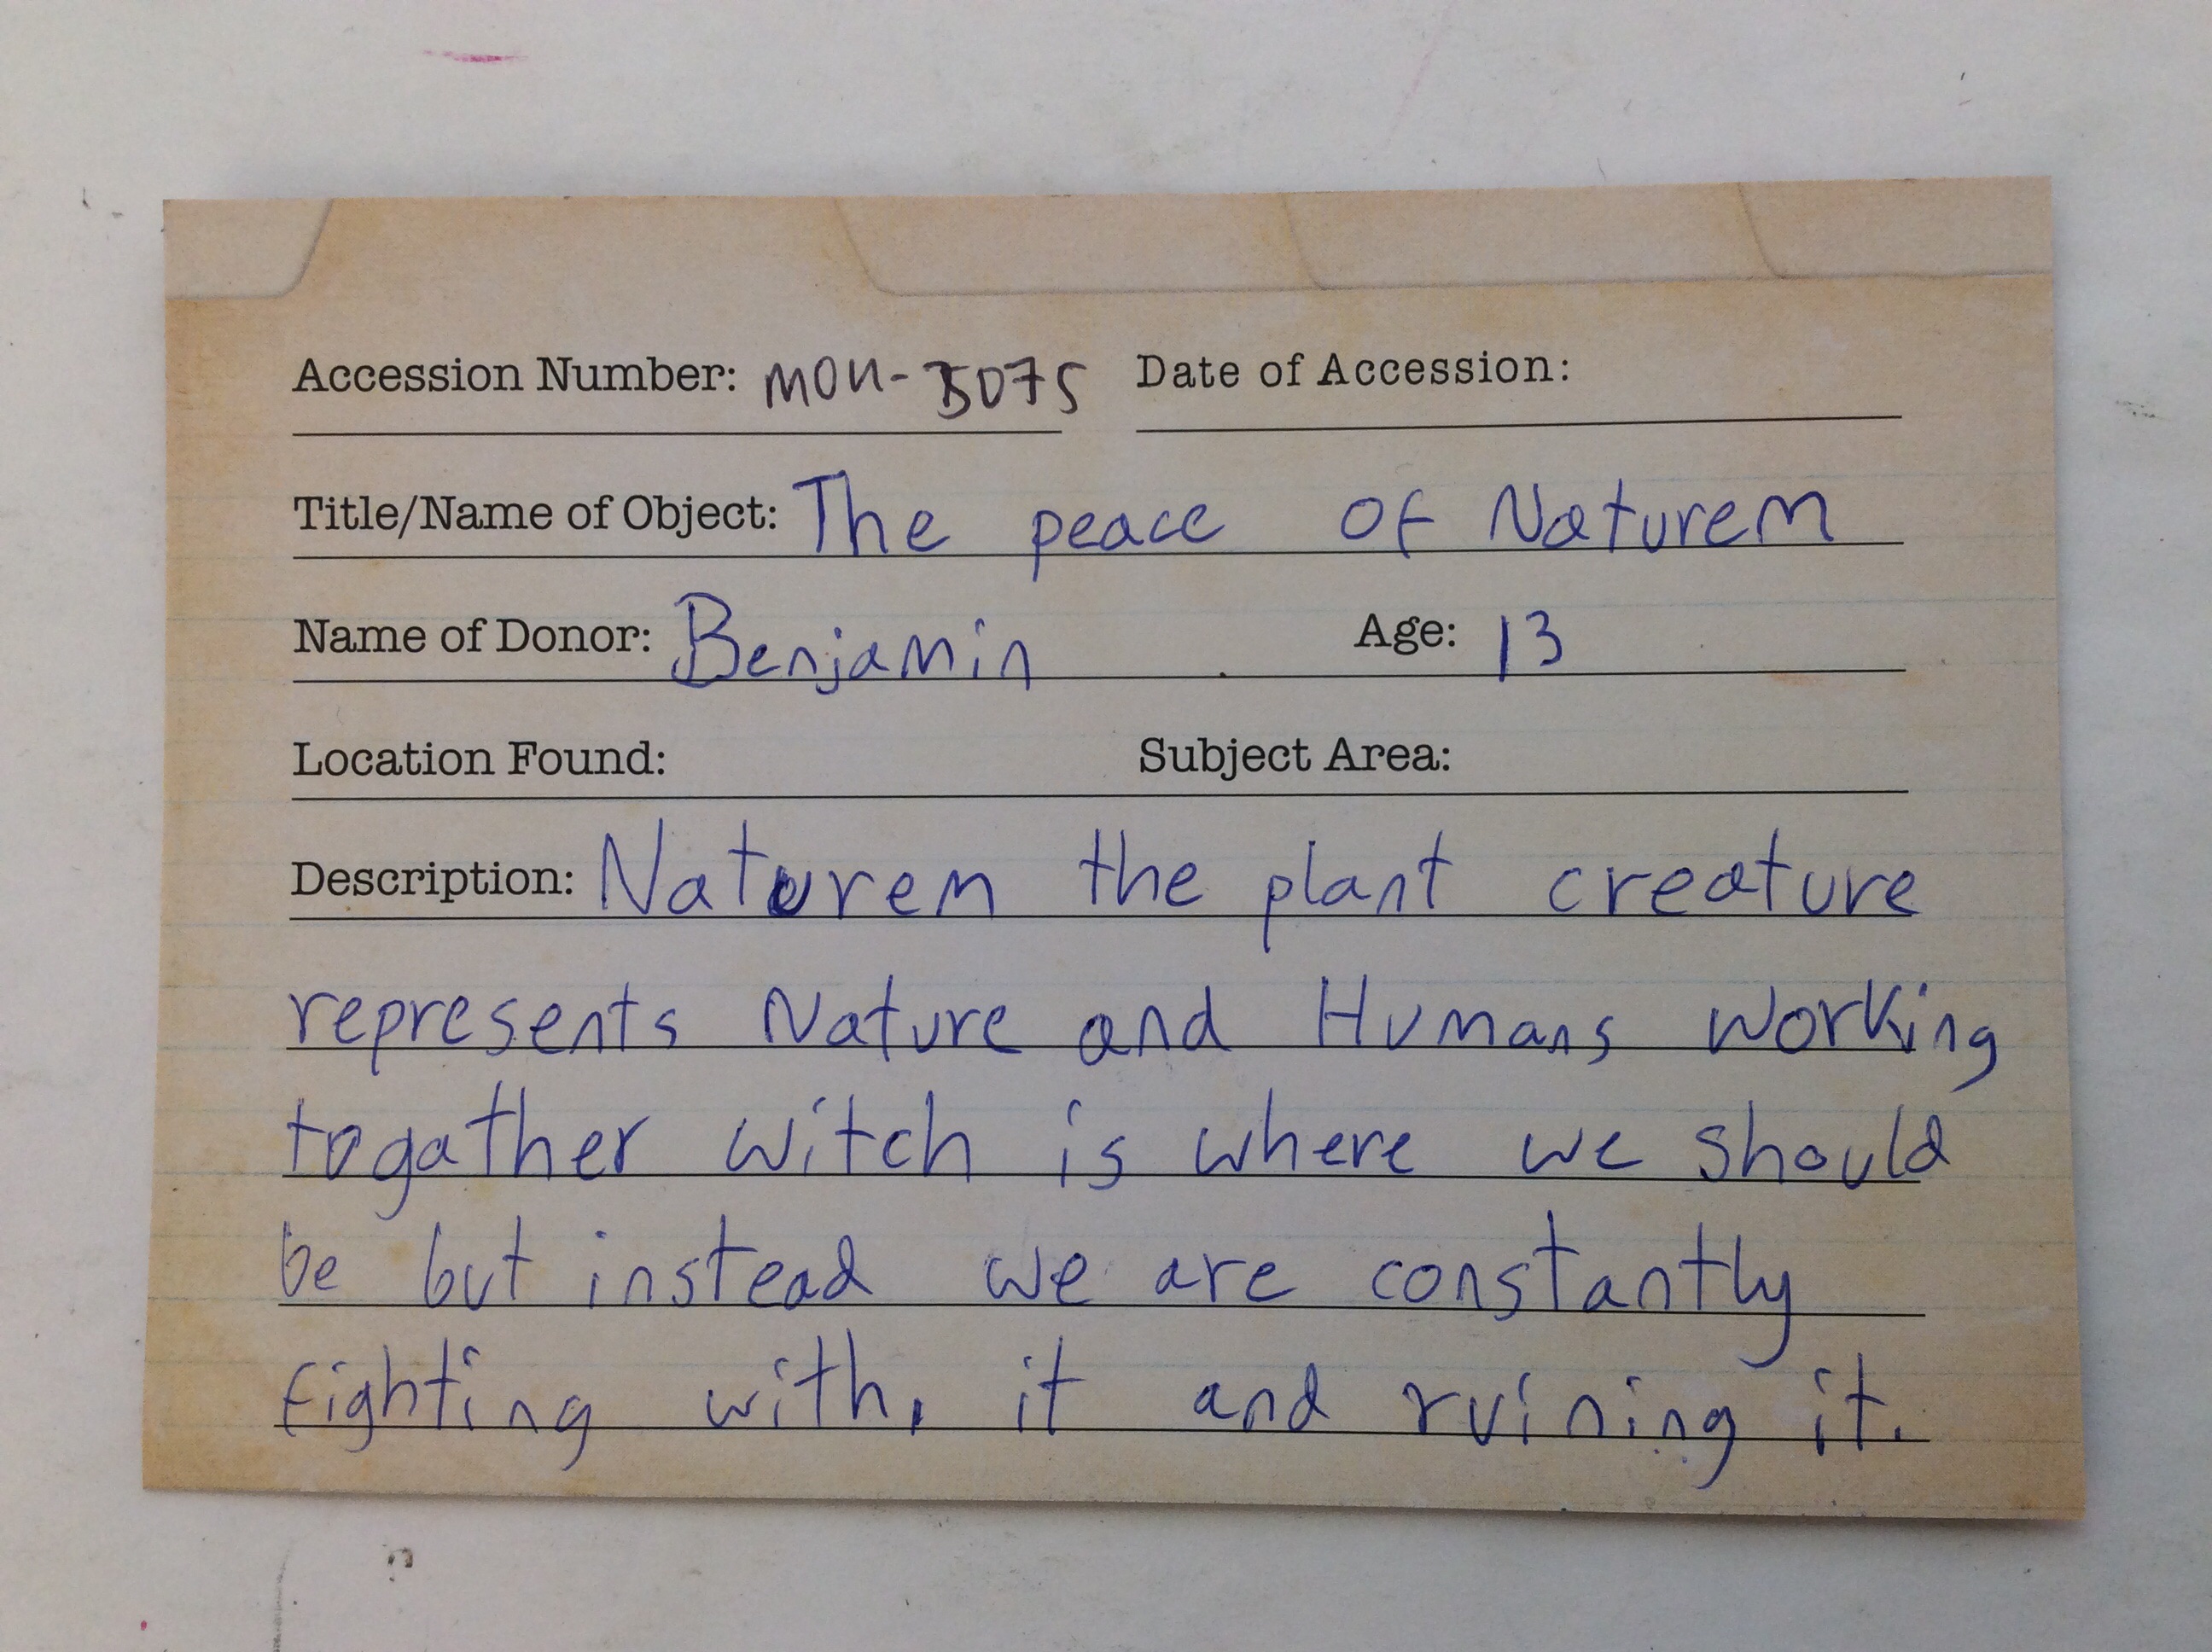 Accession Number: MON-5075 Date of Accession:
Title/Name of Object: The peace of Naturem
Name of Donor: Benjamin Age: 13
Location Found: Subject Area:
Description: Naturem the plant creature
represents Nature and Humans working
togather witch is where we should
be but instead we are constantly
fighting with, it and ruining it.